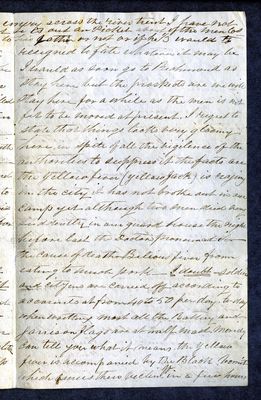 enemy across the river but I have not
out on Picket
resigned to fate where it may be
I would as soon go to Richmond as
stay here but the prospects are we will
stay here for a while as the men is not
fit to be moved at present. I regret to
state that things looks very gloomy
here, in spite of all the vigilence of the
authorities to suppress it the facts are
the Yellow fever (yellow jack) is raging
in the city it has not broke out in our
camp yet although two men died very
suddenly in our guard house the night
before last the Doctor pronounced
the cause of death Bilious fever from
eating to much pork — I doubt soldiers
and citizens are carried off according to
accounts at from 40 to 50 per day. to day
when writing most all the Battery and
Garrison flags are at half mast. Mandy
can tell you what it means. the yellow
fever is accompanied by the Black Vomit
which carries there victims in a few hours